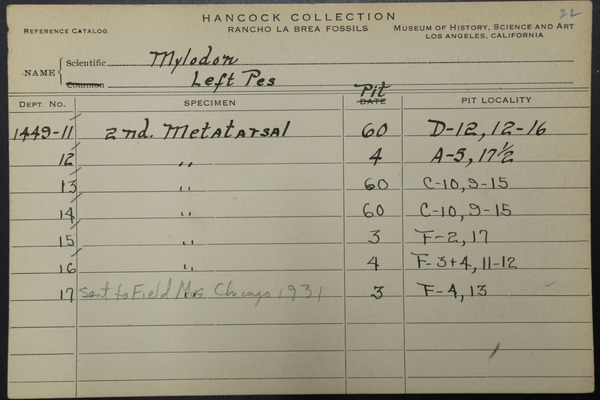 22
HANCOCK COLLECTION
REFERENCE CATALOG RANCHO LA BREA FOSSILS MUSEUM OF HISTORY, SCIENCE AND ART
LOS ANGELES, CALIFORNIA
NAME { Scientific Mylodon
Common Left Pes
DEPT. NO. SPECIMEN DATE Pit PIT LOCALITY
1449-11 2nd. Metatarsal 60 D-12, 12-16
12 " 4 A-5, 17½
13 " 60 C-10, 9-15
14 " 60 C-10, 9-15
15 " 3 F-2, 17
16 " 4 F-3+4, 11-12
17 " sent to Field Mus Chicago 1931 3 F-4, 13